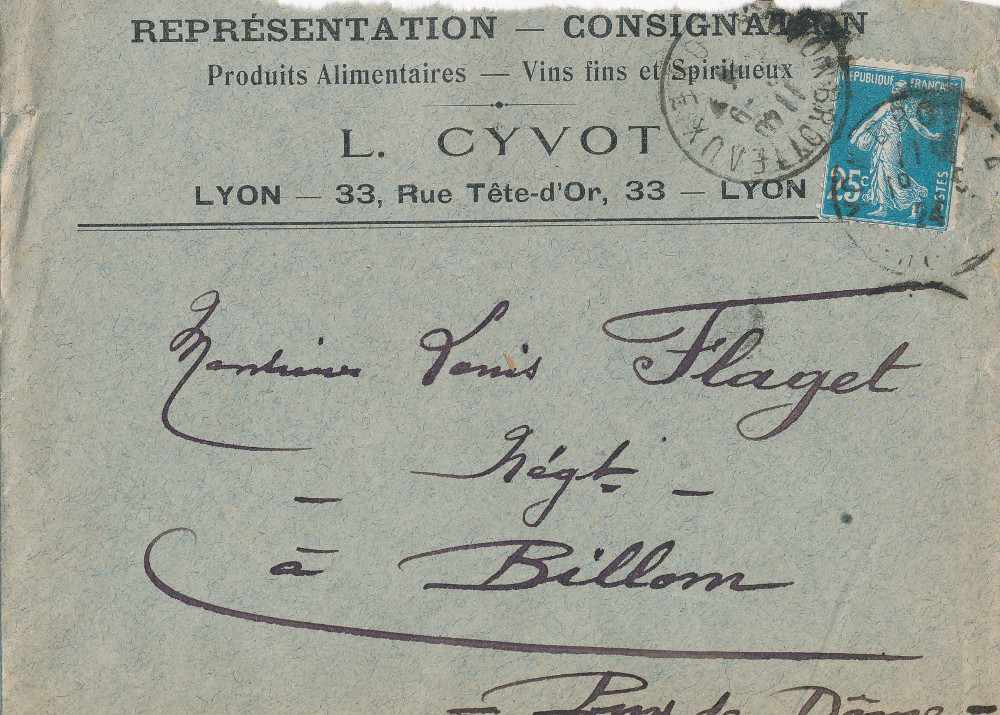 REPRÉSENTATION — CONSIGNATION
Produits Alimentaires — Vins fins et Spiritueux
L. CYVOT
LYON — 33, Rue Tête-d'Or, 33 — LYON
REPUBLIQUE FRANÇAISE
25c
POSTES
LYON BROTTEAUX
Monsieur Louis Flaget
Négt
à Billom
Puy de Dôme